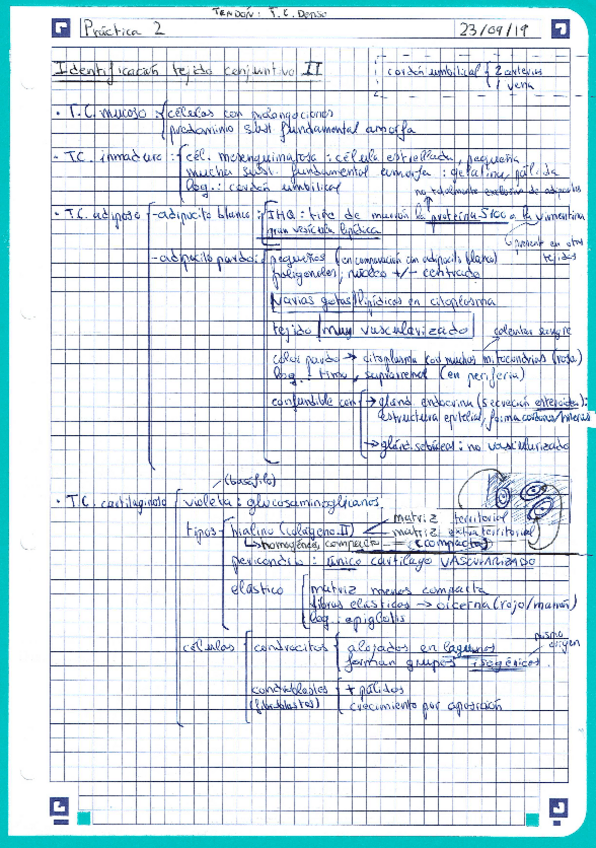 TENDÓN: T.C. Denso
Práctica 2
23/09/19
Identificación tejido conjuntivo II
cordón umbilical { 2 arterias
1 vena
· T.C. mucoso { células con prolongaciones
predominio subst fundamental amorfa
· T.C. inmaduro { cél. mesenquimatosa : célula estrellada, pequeña
mucha subst. fundamental amorfa : gelatina, pálida
log. : cordón umbilical
no totalmente exclusiva de adipocitos
· T.C. adiposo { - adipocito blanco : { IHQ : tiñe de marrón la proteína S100 o la vimentina
gran vesícula lipídica
presente en otros tejidos
- adipocito pardo : { pequeños (en comparación con adipocito blanco)
poligonales; núcleo +/- centrado
Varias gotas lipídicas en citoplasma
tejido muy vascularizado
calentar sangre
color pardo → citoplasma con muchas mitocondrias (rosa)
log. : timo, suprarrenal (en periferia)
confundible con { → gland endocrina (secreción esteroidea) :
estructura epitelial, forma cordones/hileras
→ gland. sebáceas : no vascularizado
(basófilo)
· T.C. cartilaginoso { violeta : glucosaminoglicanos
tipos { hialino (colágeno II) matriz territorial
matriz extraterritorial
↳ homogénea, compacta (compacta)
pericondrio : único cartílago VASCULARIZADO
elástico { matriz menos compacta
fibras elásticas → orceína (rojo/marrón)
log : epiglotis
mismo origen
células { condrocitos { alojados en lagunas
forman grupos isogénicos
condroblastos { + pálidos
(fibroblastos) crecimiento por aposición